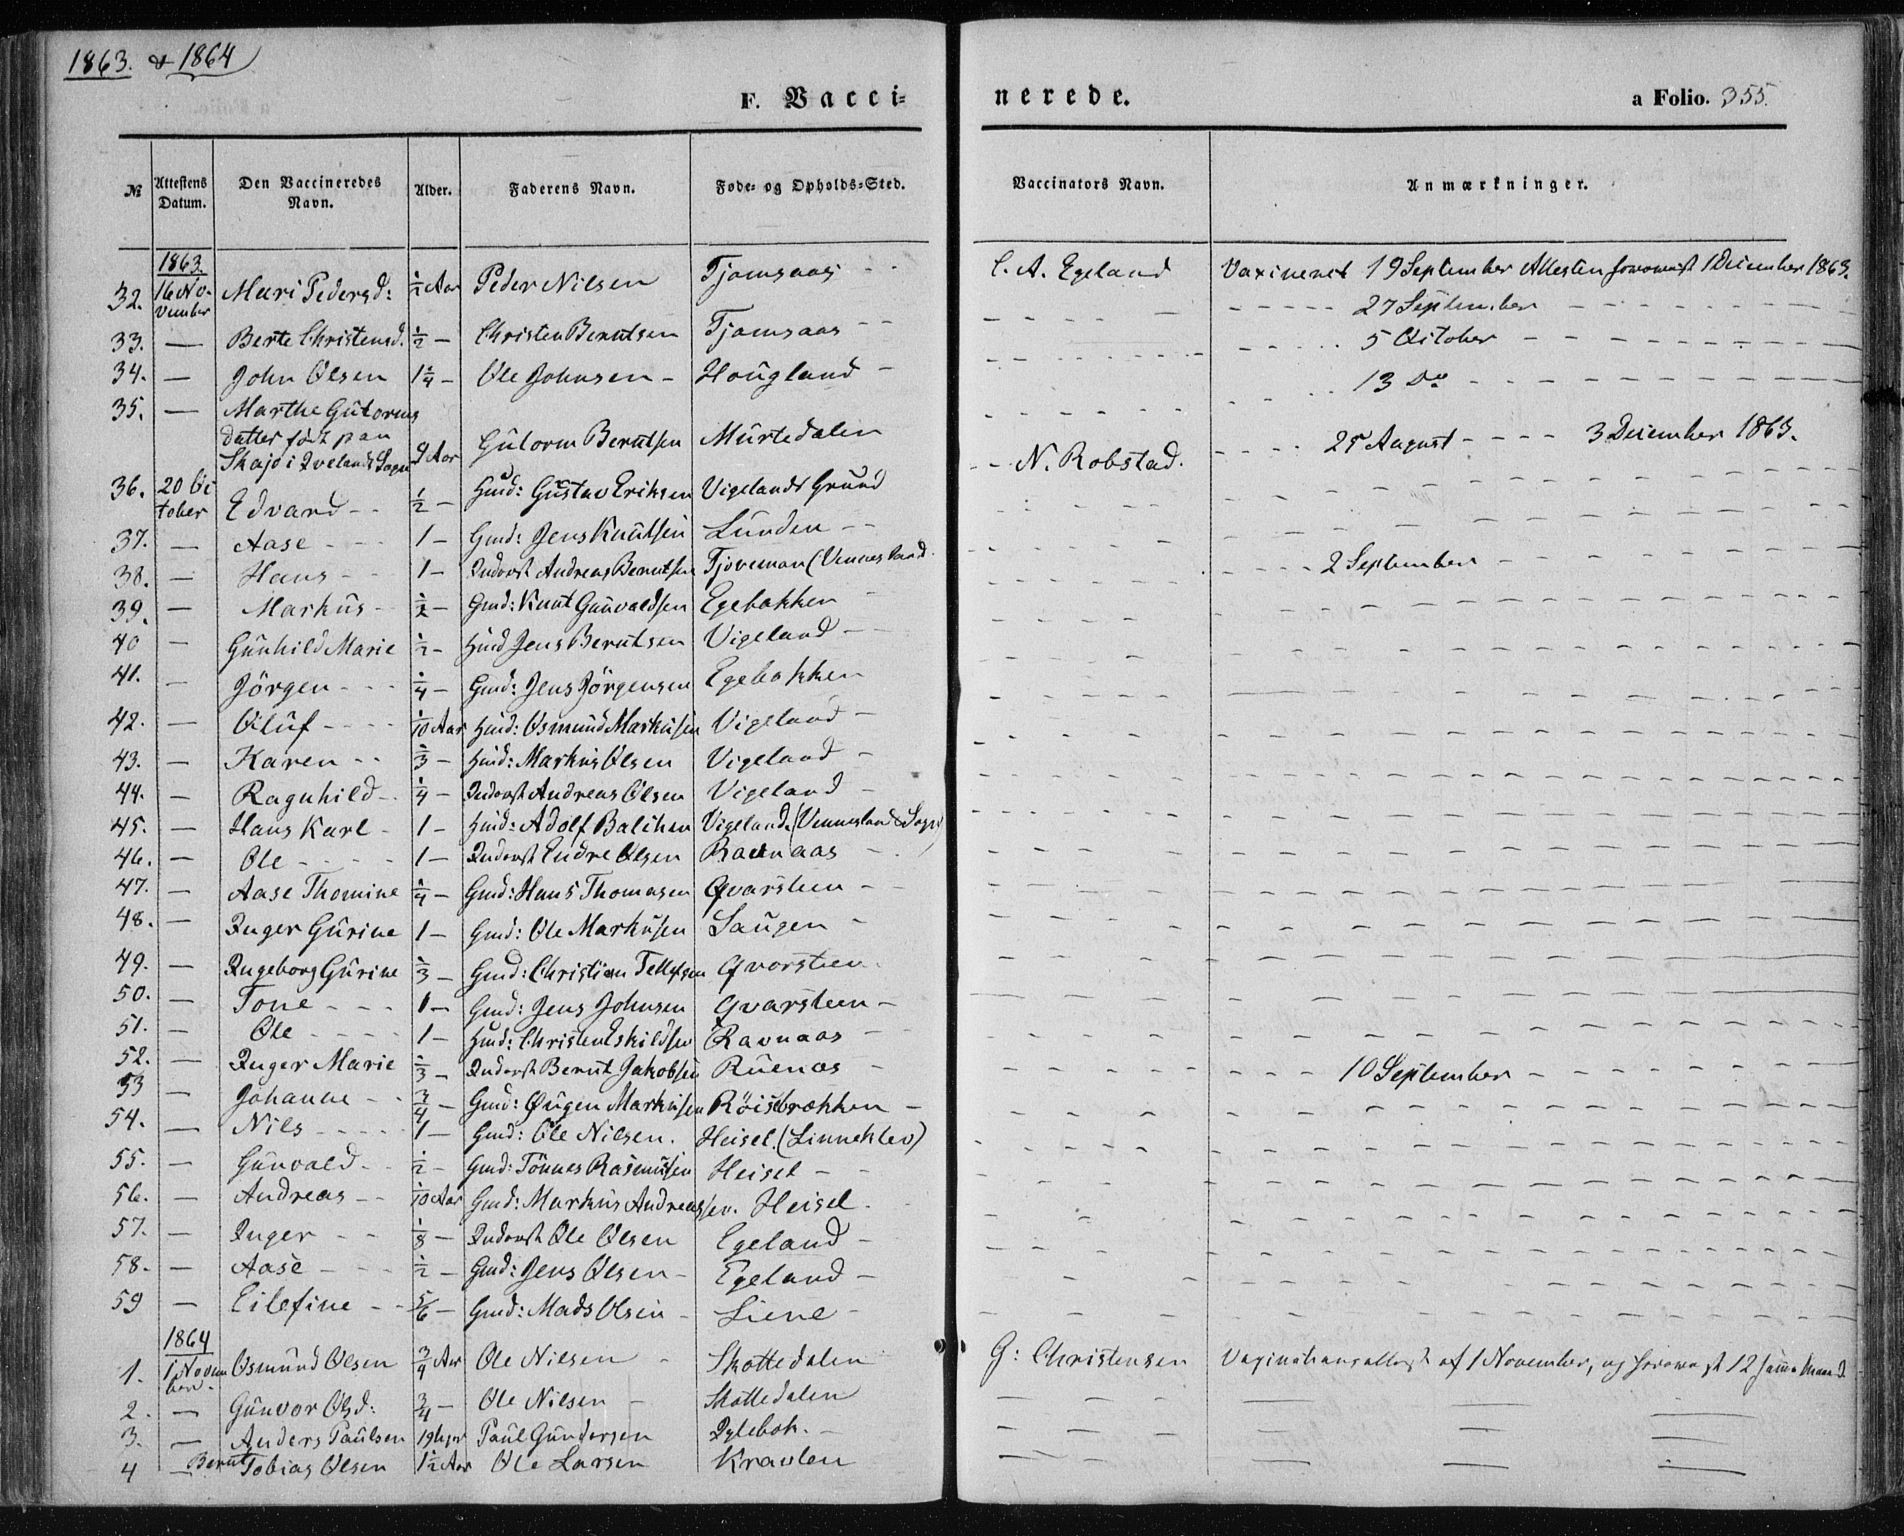 1863. & 1864
F. Vacci=
nerede.
a Folio. 355.
№
Attestens Datum.
Den Vaccineredes Navn.
Alder.
Faderens Navn.
Føde= og Opholds=Sted.
Vaccinators Navn.
Anmærkninger.
1863.
32. 16 No- vember Mari Pedersd: ½ Aar Peder Nilsen Tjomsaas - - C. A. Egeland Vaxineret 19 September Attesten 1 December 1863.
33. — Berte Christensd. ½ — Christen Berntsen Tjomsaas - - 27 September
34. — John Olsen 1¼ — Ole Johnsen - Hougland - 5 October
35. — Marthe Gutorms 13 Do
datter født paa
Skajo i Ivelands Sogn 9 Aar Gutorm Berntsen Murtedalen - - N. Robstad. 25 August - - - - 3 December 1863.
36. 20 Oc tober Edvard - - ½ — Hmd: Gustav Eriksen Vigelands Grund
37. — Aase - - - 1 — Gmd: Jens Knutsen Lunden - -
38. — Hans - - 1 — Inderst Andreas Berntsen (Vennesland 2 September
39. — Markus - ½ — Gmd: Knut Gunvaldsen Egebakken -
40 — Gunhild Marie ½ — Hmd Jens Berntsen Vigeland - -
41. — Jörgen - - - ¼ — Gmd: Jens Jörgensen Egebakken
42. — Oluf - - - - 1/10 Aar Hmd: Osmund Markusen Vigeland -
43. — Karen - - ⅓ — Hmd: Markus Olsen Vigeland -
44. — Ragnhild - - ¼ — Inderst Andreas Olsen Vigeland -
45. — Hans Karl - 1 — Hmd: Adolf Balchen Vigeland (Vennesland Sogn)
46. — Ole - - - - 1 — Inderst Endre Olsen Ravnaas - -
47. — Aase Thomine ¼ — Gmd: Hans Thomasen Qvarsteen - -
48. — Inger Gurine 1 — Gmd: Ole Markusen Laugen -
49. — Ingeborg Gurine ⅓ — Gmd: Christian Tellefsen Qvarsteen -
50. — Tone - - - 1 — Gmd: Jens Johnsen Qvarsteen -
51. — Ole - - - - 1 — Hmd: Christen Eskildsen Ravnaas - -
52. — Inger Marie ⅔ — Inderst Bernt Jakobsen Ruenes - 10 September
53 — Johanne - - ¾ — Gmd: Markusen Röisbrækken -
54. — Nils - - - - 1 — Gmd: Ole Nilsen. Heisel. (Linneklev)
55. — Gunvald - - ½ — Gmd: Tönnes Rasmusen Heisel - -
56. — Andreas - - 1/10 Aar Gmd: Markus Andreassen. Heisel.
57. — Inger - - ⅛ — Inderst Ole Olsen Egeland -
58. — Aase - - - ½ — Gmd: Jens Olsen - Egeland -
59 — Eilefine - - 5/6 — Gmd: Mads Olsen - Liene -
1864
1. 1 Novem ber. Osmund Olsen ¾ Aar Ole Nilsen - Skottedalen G: Christensen Vaxinationsattest af 1 November, og 12 samme Maaned.
2. — Gunvor Olsd: ¾ — Ole Nilsen - Skottedalen
3. — Anders Paulsen Paul Gundersen -
4 — Bernt Tobias Olsen 1½ Aar Ole Larsen Kravlen